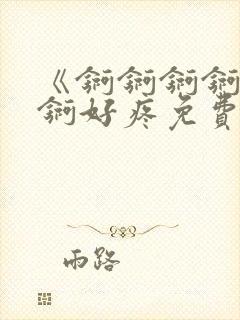 《锕锕锕锕
锕好疼免費
雨路